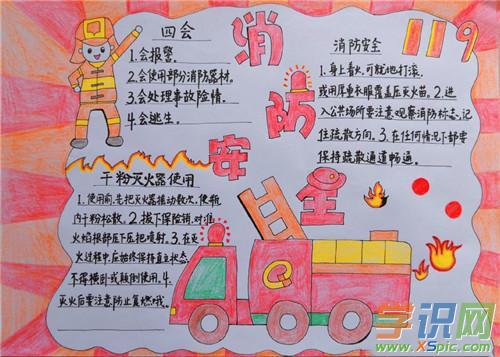 消
防
安
全
四会
1.会报警。
2.会使用部分消防器材。
3.会处理事故险情。
4.会逃生。
消防安全
119
1.身上着火,可就地打滚,
或用厚重衣服覆盖压灭火苗。2.进
入公共场所要注意观察消防标志,记
住疏散方向。3.在任何情况下都要
保持疏散通道畅通。
干粉灭火器使用
1.使用前,先把灭火器摇动数次,使瓶
内干粉松散。2.拔下保险销,对准
火焰根部压下压把喷射。3.在灭
火过程中,应始终保持直立状态,
不得横卧或颠倒使用。4.
灭火后要注意防止复燃。
学识网
www.XSpic.com